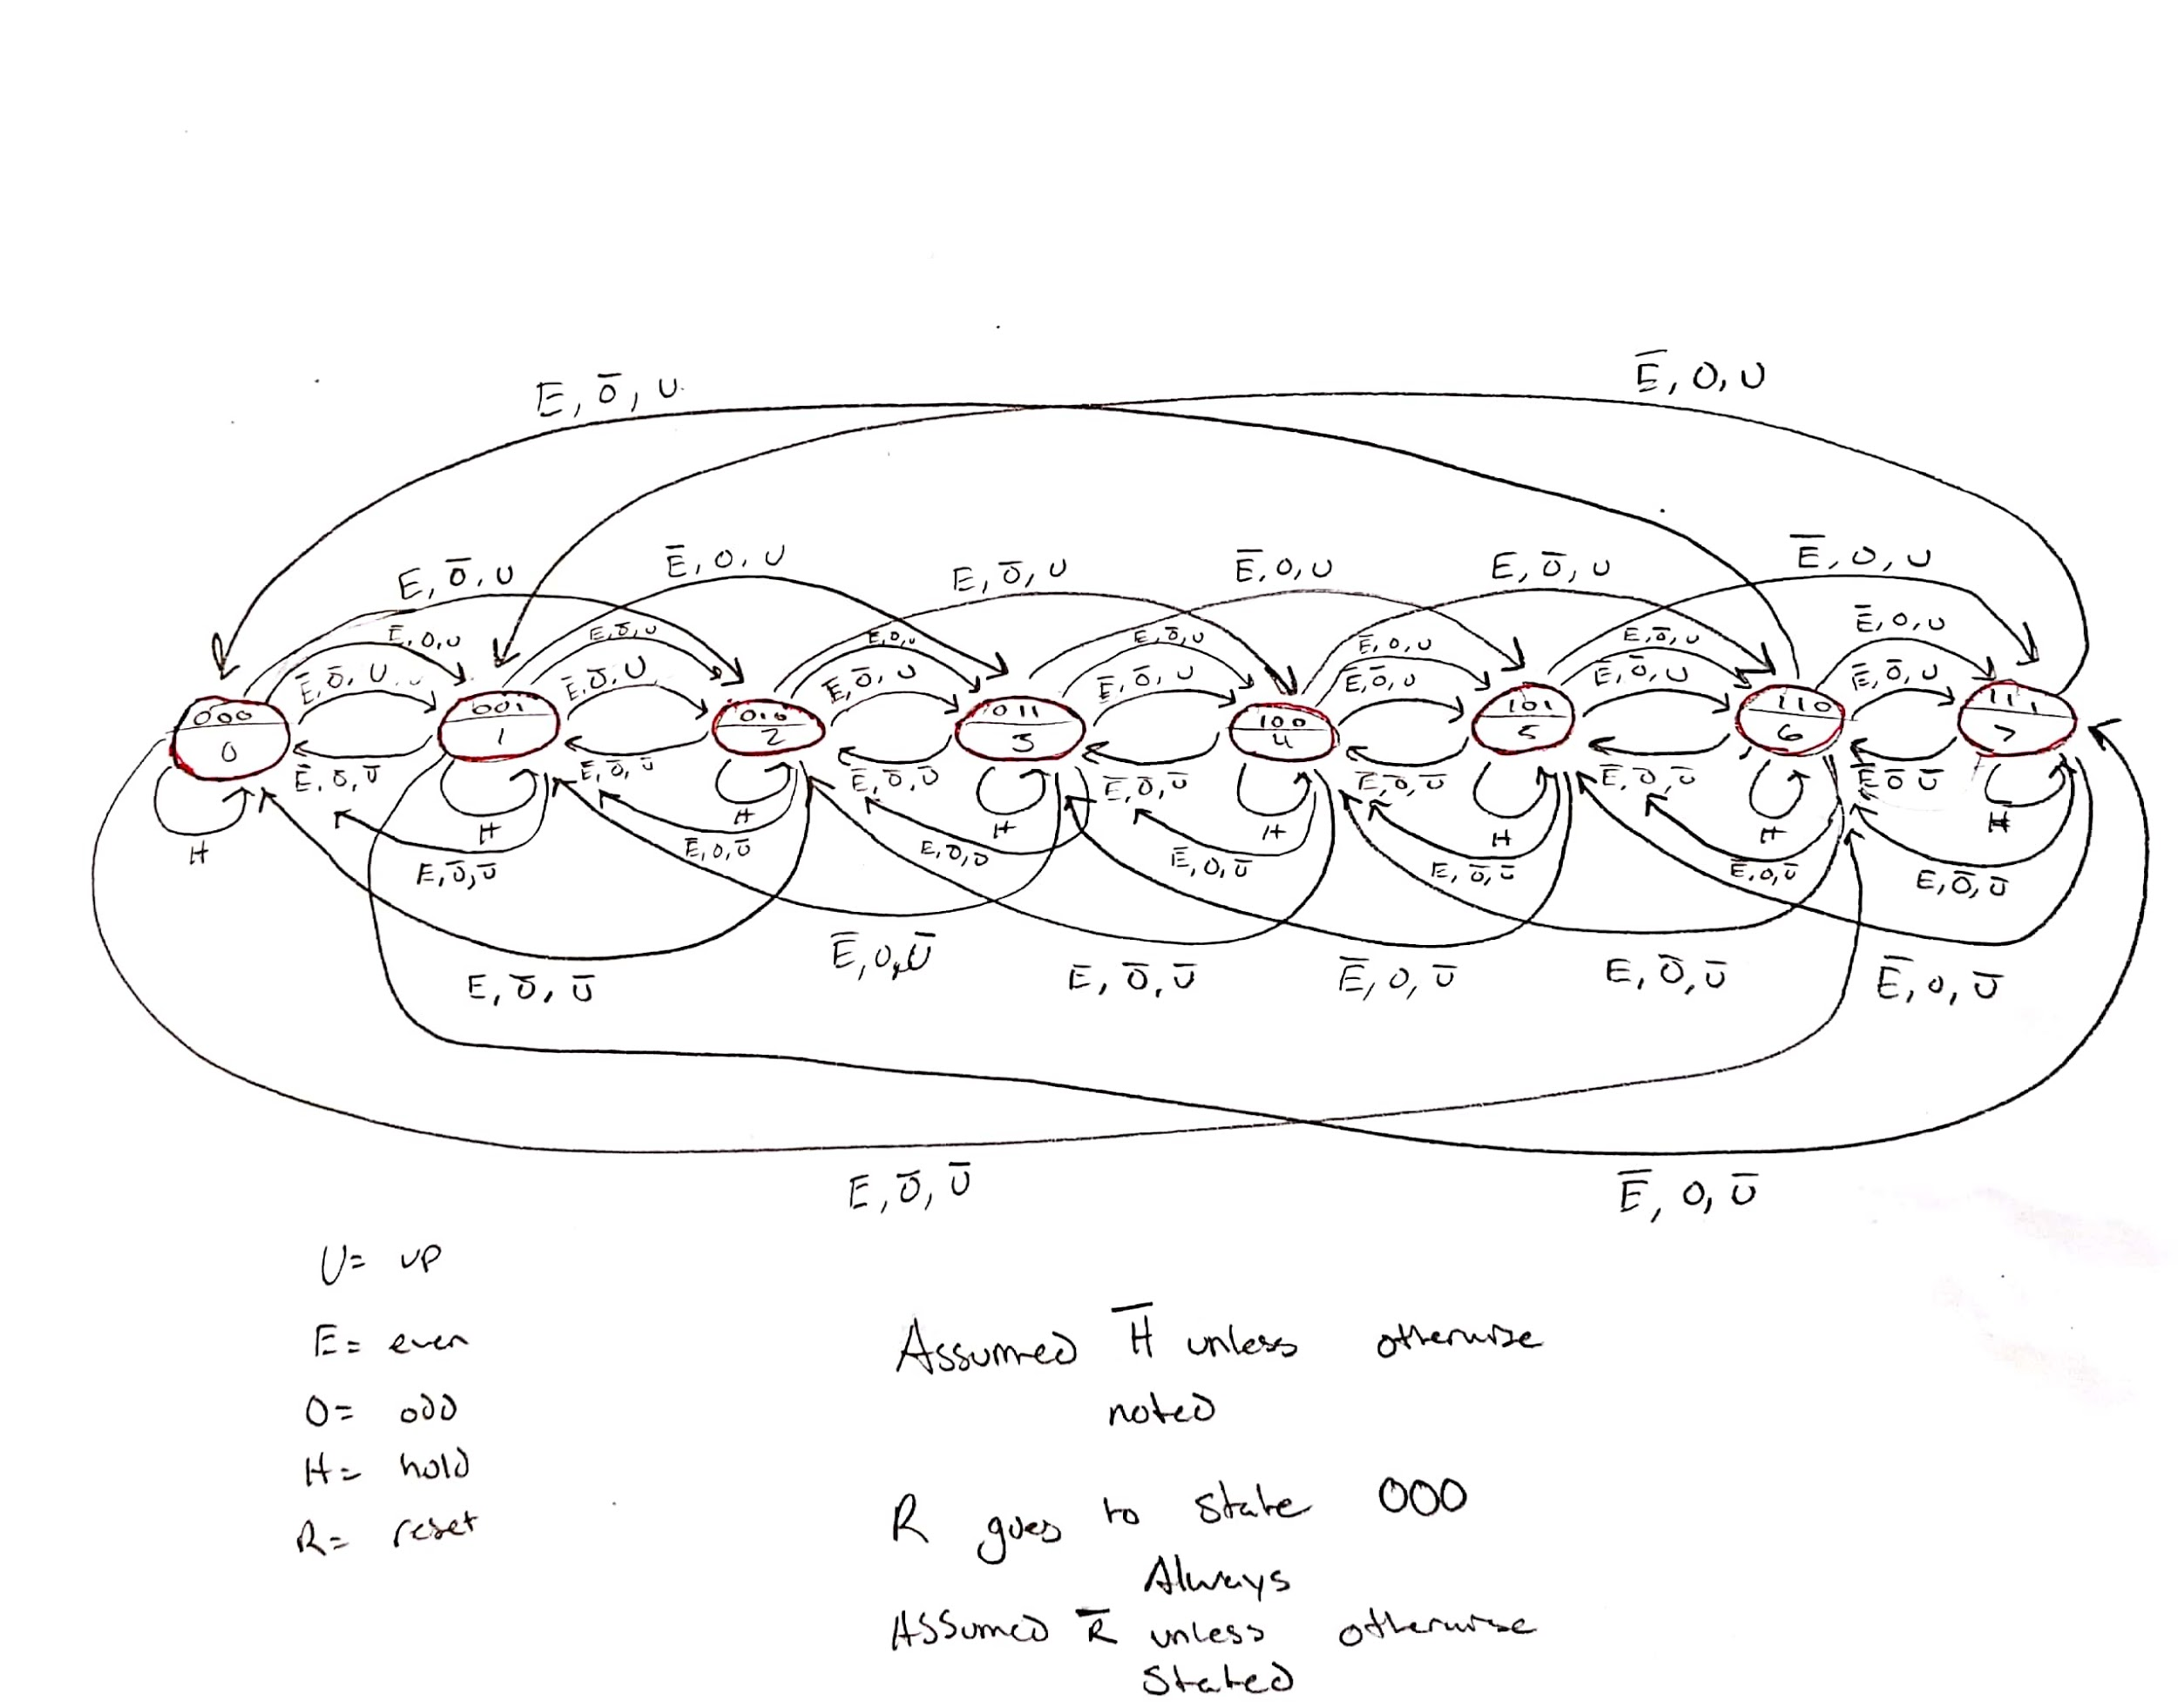 E, O̅, U
E̅, O, U
E, O̅, U
E̅, O, U
E, O̅, U
E̅, O, U
E, O̅, U
E̅, O, U
E̅, O, U
E, O̅, U
E̅, O, U
E, O̅, U
E̅, O, U
E, O̅, U
E̅, O, U
E̅, O̅, U
E̅, O̅, U
E̅, O̅, U
E̅, O̅, U
E̅, O̅, U
E̅, O̅, U
E̅, O̅, U
000
001
010
011
100
101
110
111
0
1
2
3
4
5
6
7
E̅, O̅, U̅
E̅, O̅, U̅
E̅, O̅, U̅
E̅, O̅, U̅
E̅, O̅, U̅
E̅, O̅, U̅
E̅ O̅ U̅
H
H
H
H
H
H
H
H
E, O̅, U̅
E̅, O, U̅
E̅, O, U̅
E, O̅, U̅
E̅, O, U̅
E, O̅, U̅
E, O̅, U̅
E̅, O, U̅
E, O̅, U̅
E̅, O, U̅
E, O̅, U̅
E̅, O, U̅
E, O̅, U̅
E̅, O, U̅
U= up
E= even
O= odd
H= hold
R= reset
Assumed H̅ unless otherwise
noted
R goes to state 000
Always
Assumed R̅ unless otherwise
Stated